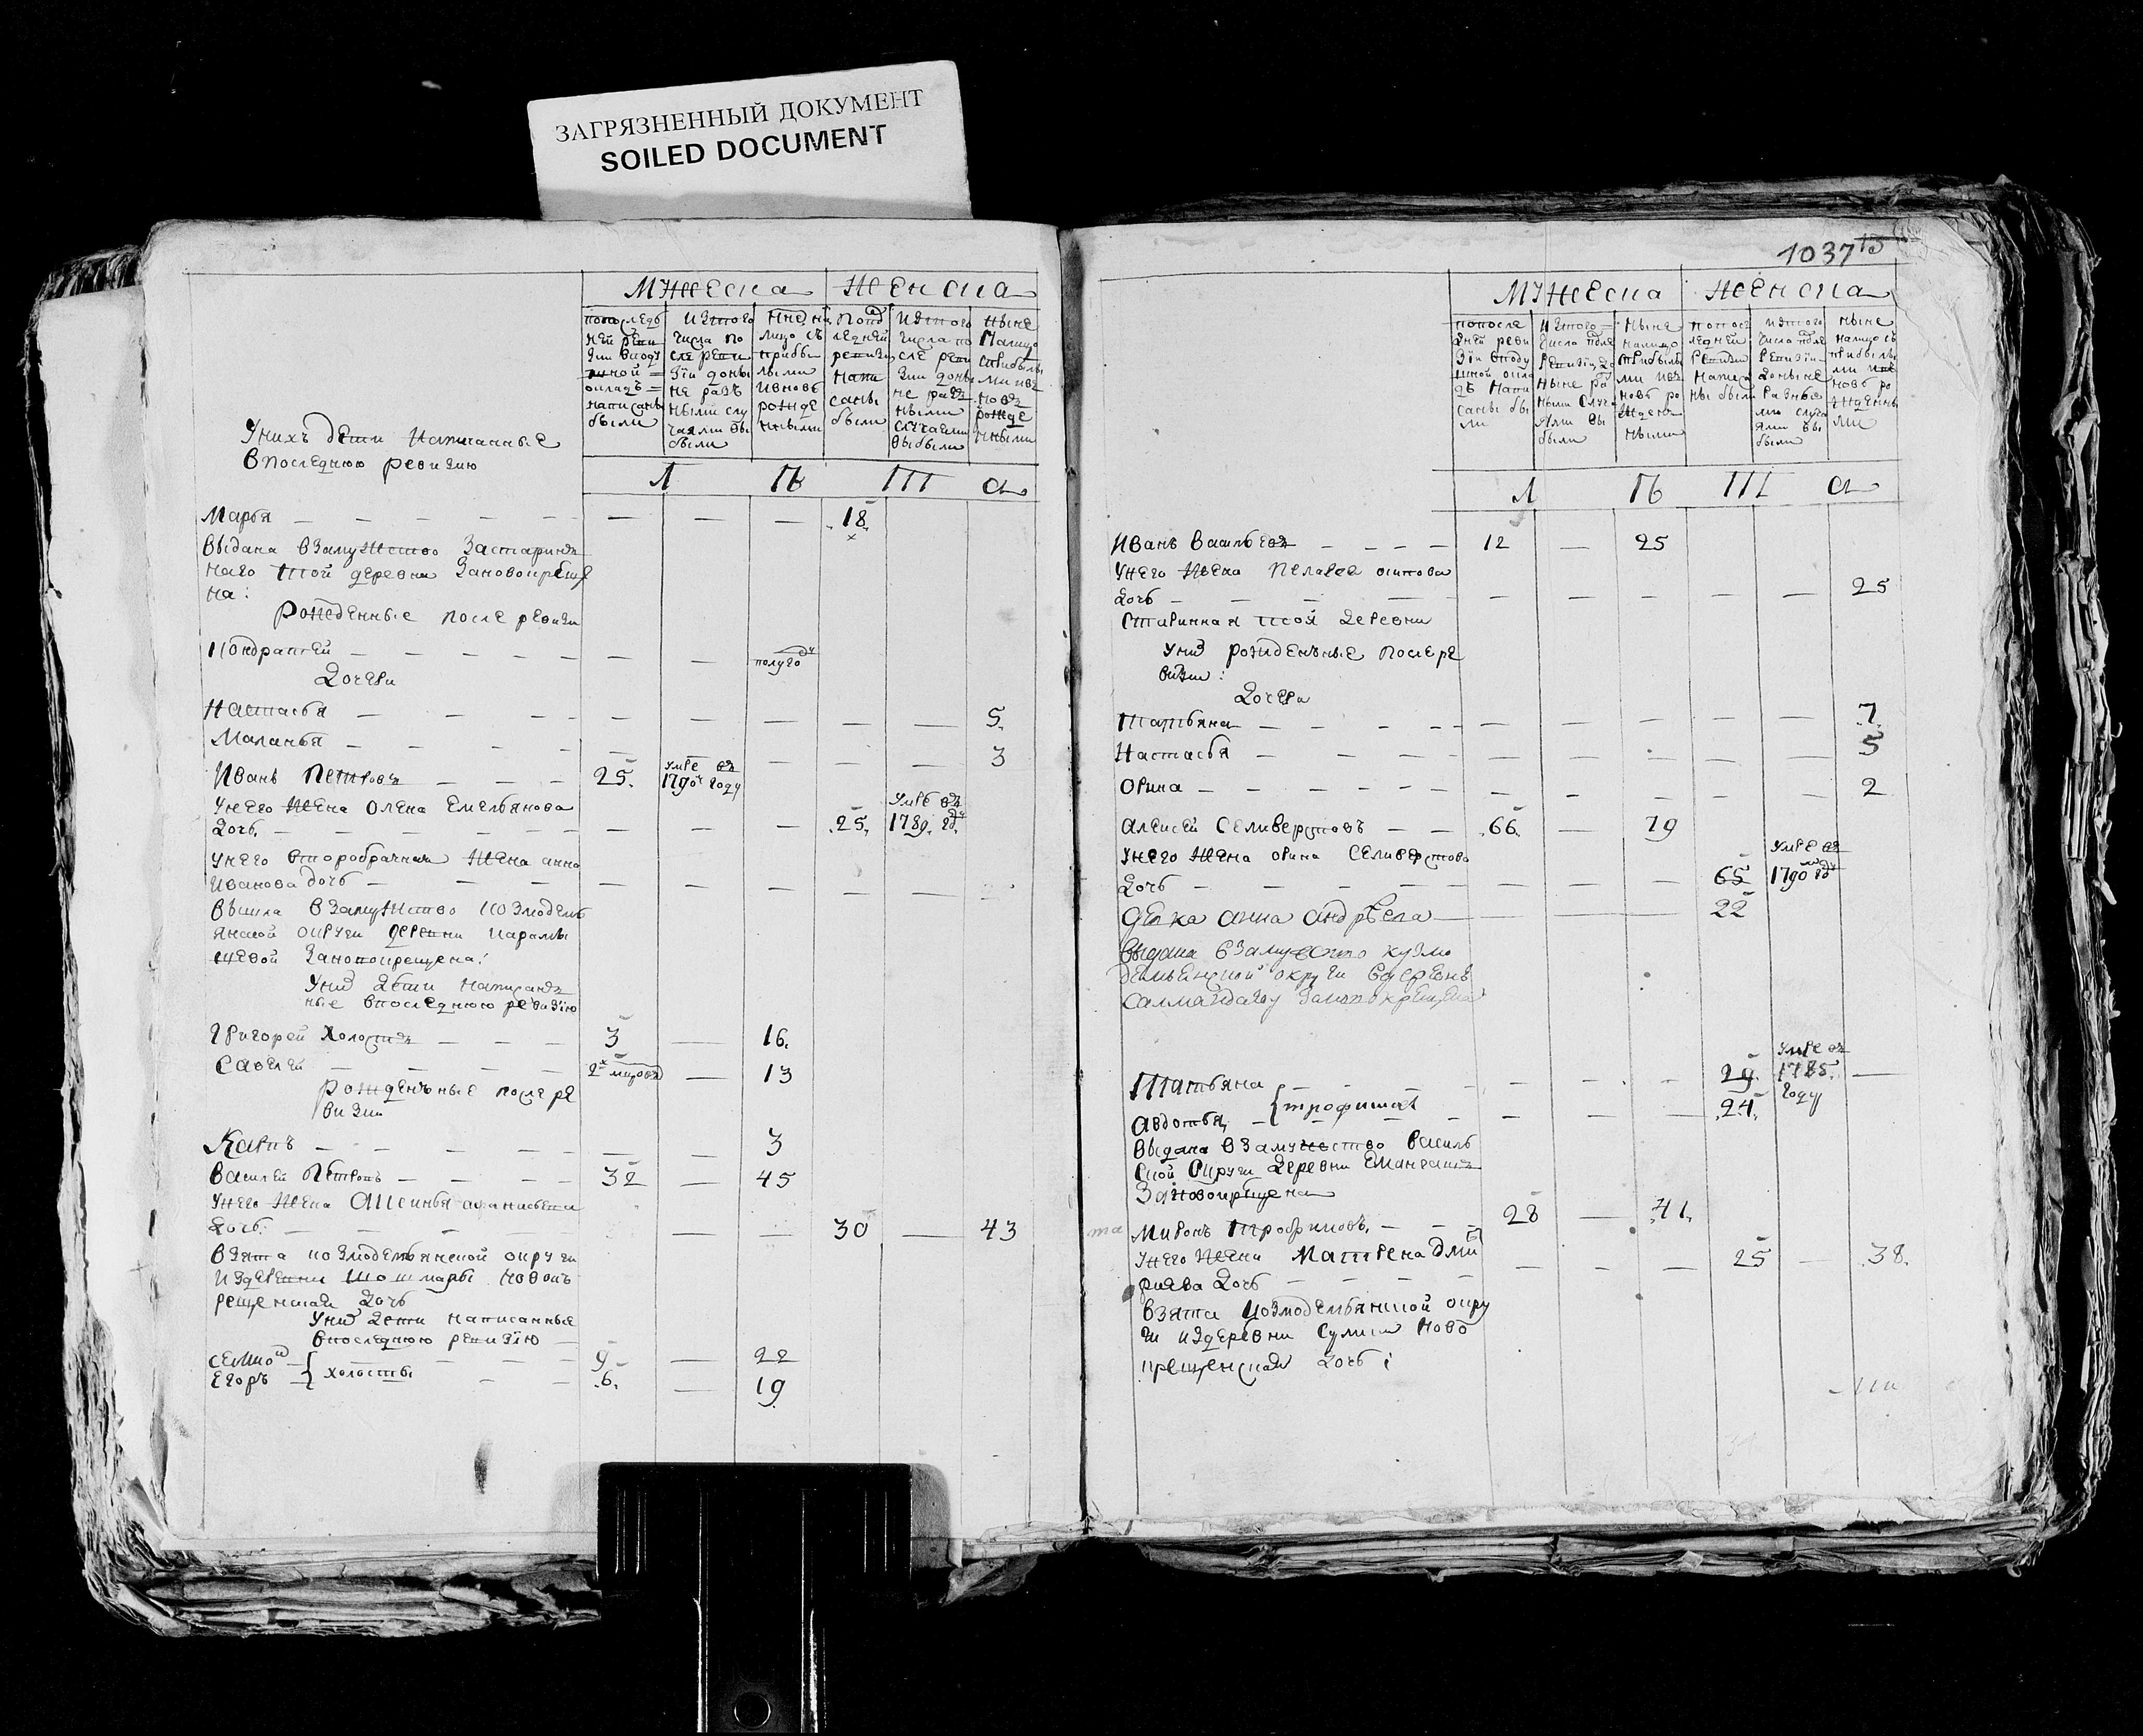 ЗАГРЯЗНЕННЫЙ ДОКУМЕНТ
SOILED DOCUMENT
Мужеска Женска
попоследъ
ней реви
зии вподу
шной
окладъ
написаны
были
изтого
числа по
сле реви
зіи доны
не разъ
ными слу
чаями вы
были
ныне на
лицо съ
прибы
лыми
ивновь
рожде
нными
попос
ледней
ревизии
напи
саны
были
изтого
числа по
сле реви
зии доны
не раз
ными
случаеми
выбыли
ныне
налицо
сприбылы
ми ивъ
новъ
рожде
нными
Унихъ дети написанные
впоследнюю ревизию
Л Ѣ Т А
Марья 18
выдана взамужство застаринъ
наго той деревни зановокреще
на:
Рожденные после ревизи
Кондратей полугоду
Дочери
Настасья 5
Маланья 3
Иванъ Петровъ 25 умре въ 1790 году
Унего жена Олена Емельянова
Дочь 25 умре въ 1789 году
Унего второбрачная жена анна
Иванова дочь
вышла взамужство козмодемь
янской округи деревни карамы
шевой зановокрещена:
Униз дети написанъ
ные впоследнюю ревизію
Григорей холостъ 3 16
Савелей 2 13
Рожденъные послере
визии
Карпъ 3
Василей Петровъ 32 45
Унего жена Аксинья афанасьева
Дочь 30 43
взята козмодемьянской округи
издеревни Шошмары новокъ
рещенская дочь
Униз дети написанные
впоследнюю ревизію
семион 9 22
Егоръ } холосты 6 19
1037
Мужеска Женска
попосле
дней реви
зіи вподу
шной окла
дѣ напи
саны бы
ли
изтого
числа после
ревизіи до
ныне ра
зными случа
ями вы
были
ныне
налицо
сприбылы
ми ивъ
новь ро
жден
ными
попос
ледней
ревизи
написа
ны были
изтого
числа после
ревизіи
доныне
разные
ми случа
ями вы
были
ныне
налицо съ
прибылы
ми ивъ
новь ро
жденны
ми
Л Ѣ Т А
Иванъ Васильевъ 12 25
Унего жена Пелагея осипова
Дочь 25
Старинная той деревни
Униз рожденъные послере
визии:
Дочери
Татьяна 7
Настасья 5
Орина 2
Алексей Селиверстовъ 66 79
Унего жена орина Селиверстова
Дочь 65 умре въ 1790 году
Девка анна андрѣева 22
выдана взамужство кузмо
демьянской округи вдеревнѣ
зановокрещена
Татьяна 29 умре въ 1785 году
Авдотья } трофимовы 24
выдана взамужство василь
ской округи деревни Емангашъ
зановокрещена
Миронъ Трофимовъ 28 41
Унего жена Матрена Дмит
риева дочь 25 38
взята козмодемьянской окру
ги издеревни Сулии ново
крещенская дочь: